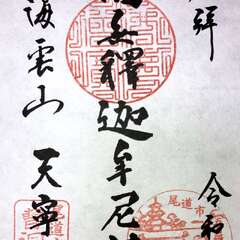 拝
令和
無釋迦牟尼
海雲山 天寧
尾道市